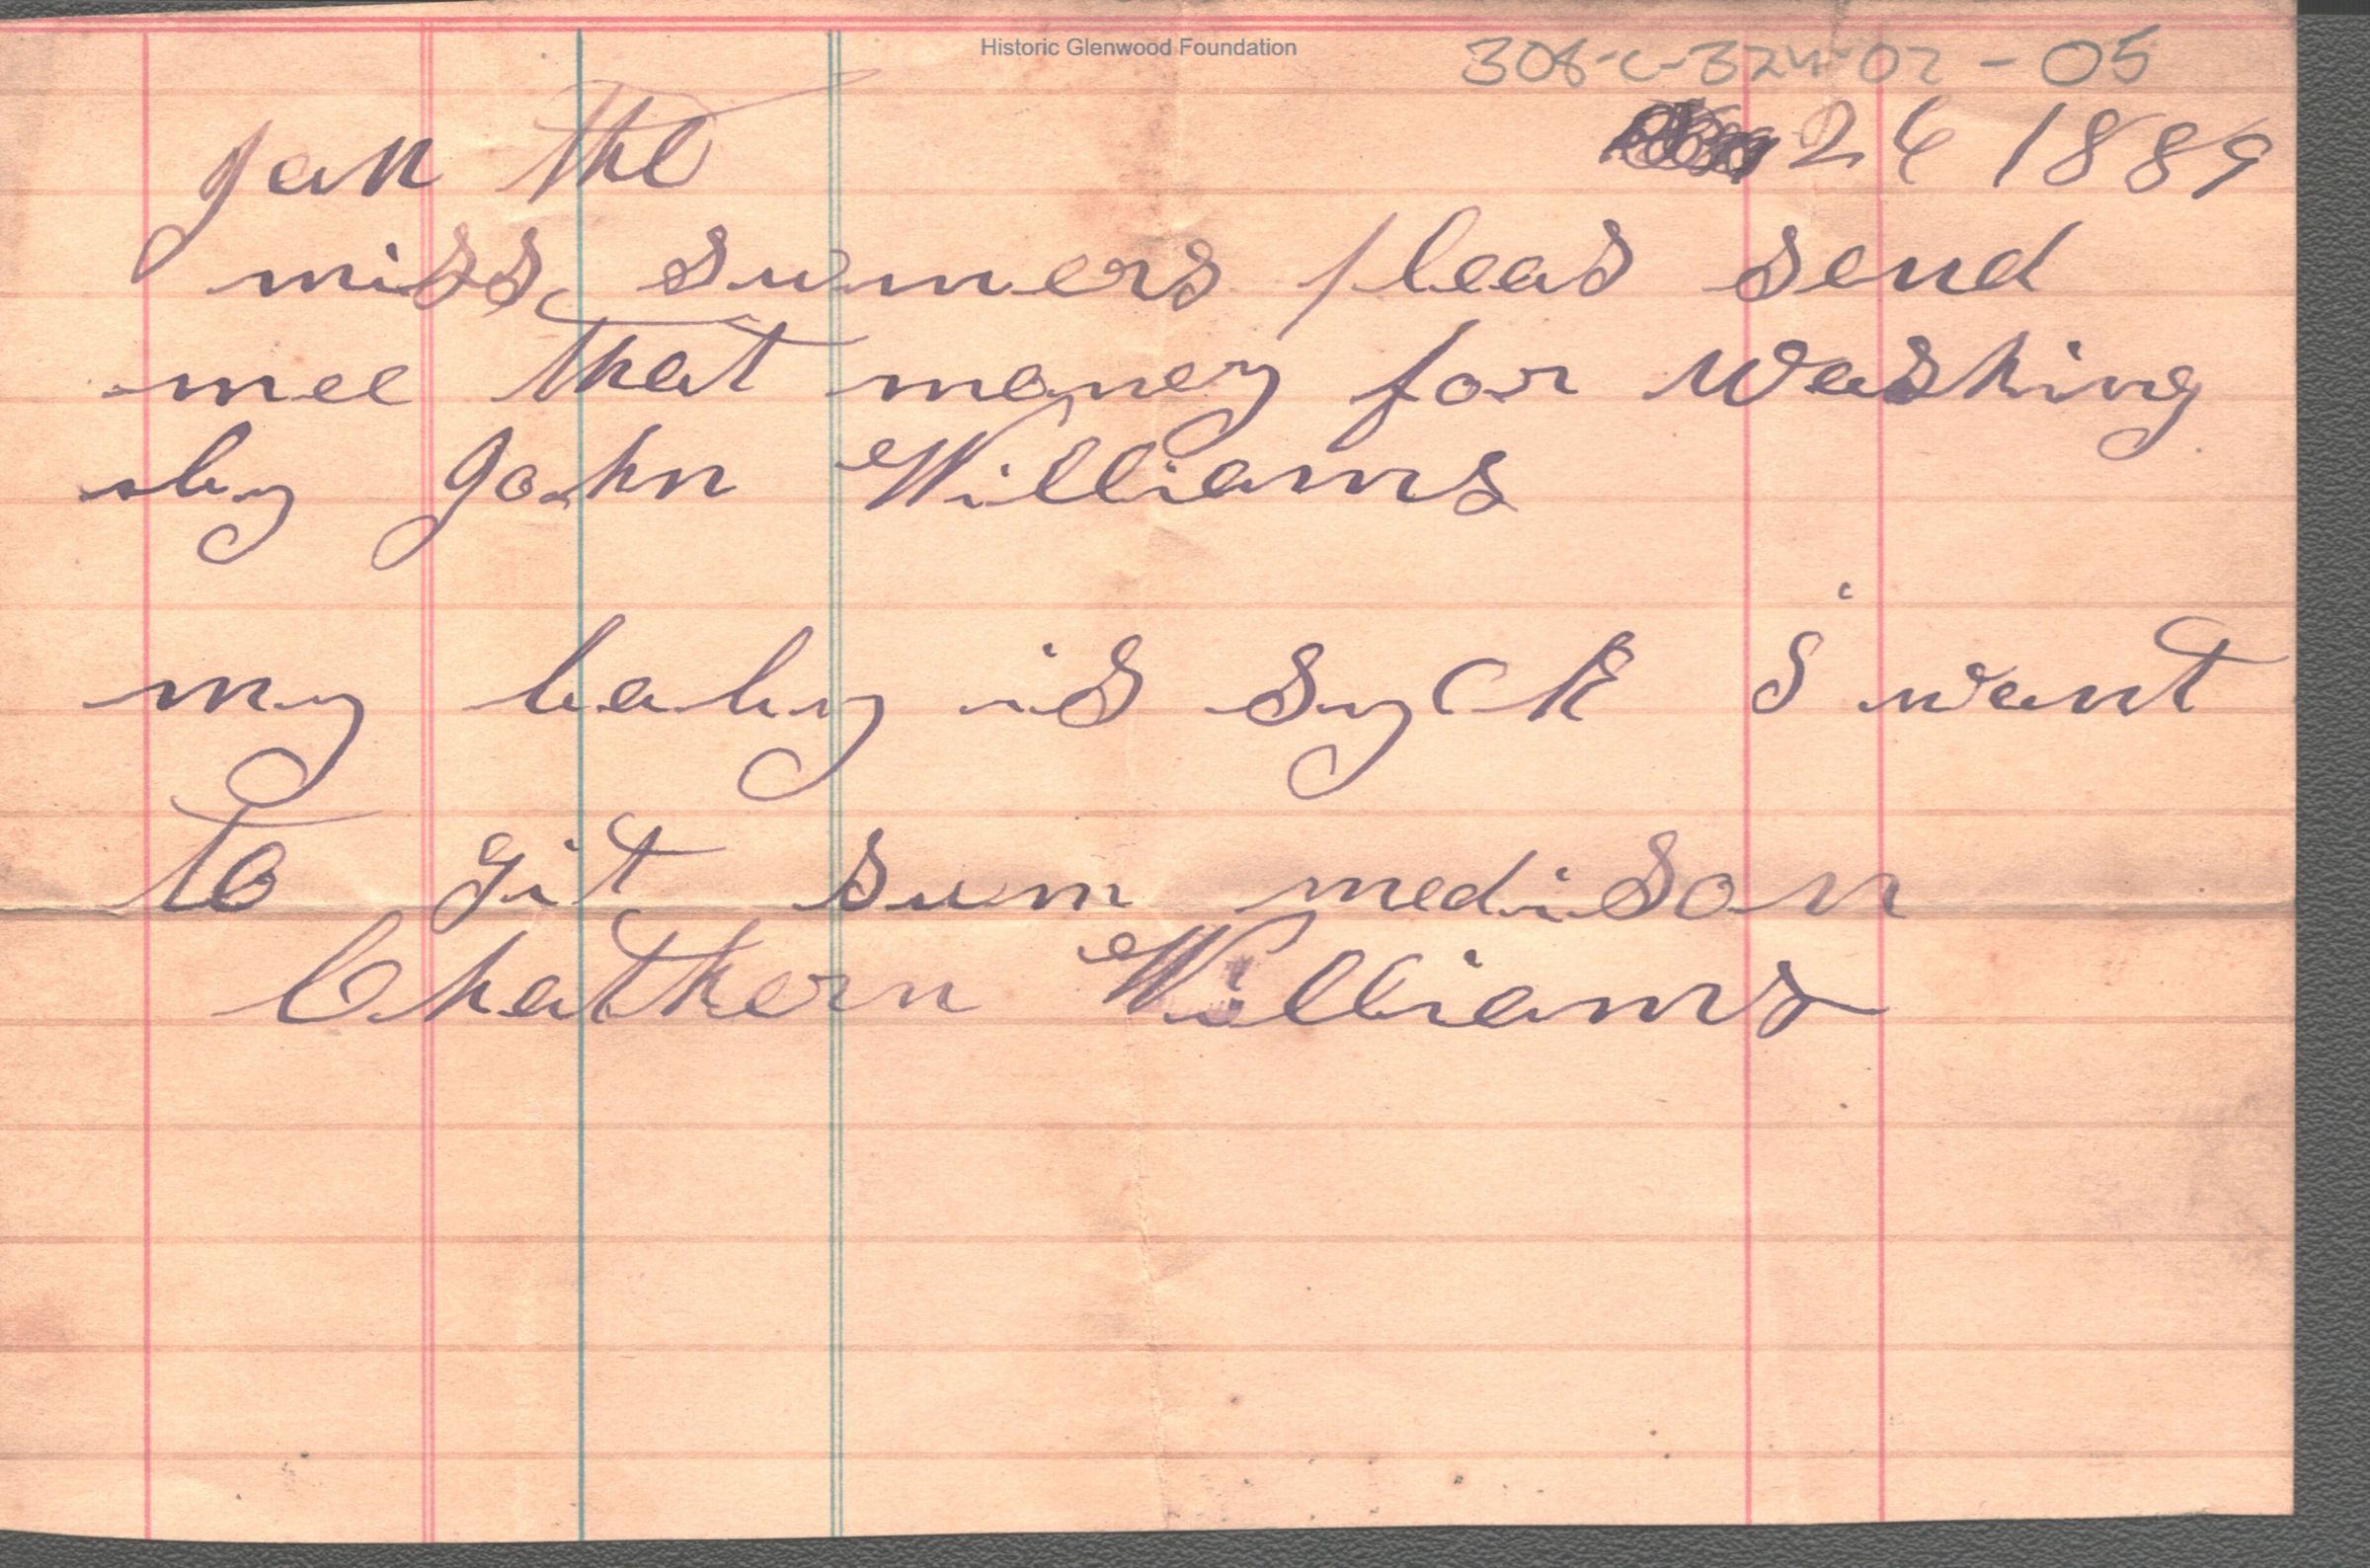 Historic Glenwood Foundation
308-C-324-02-05
Jan the 26 1889
miss sumers pleas send
mee that money for washing
by John Williams
my baby is syck i want
to git sum medison
Chathern Williams